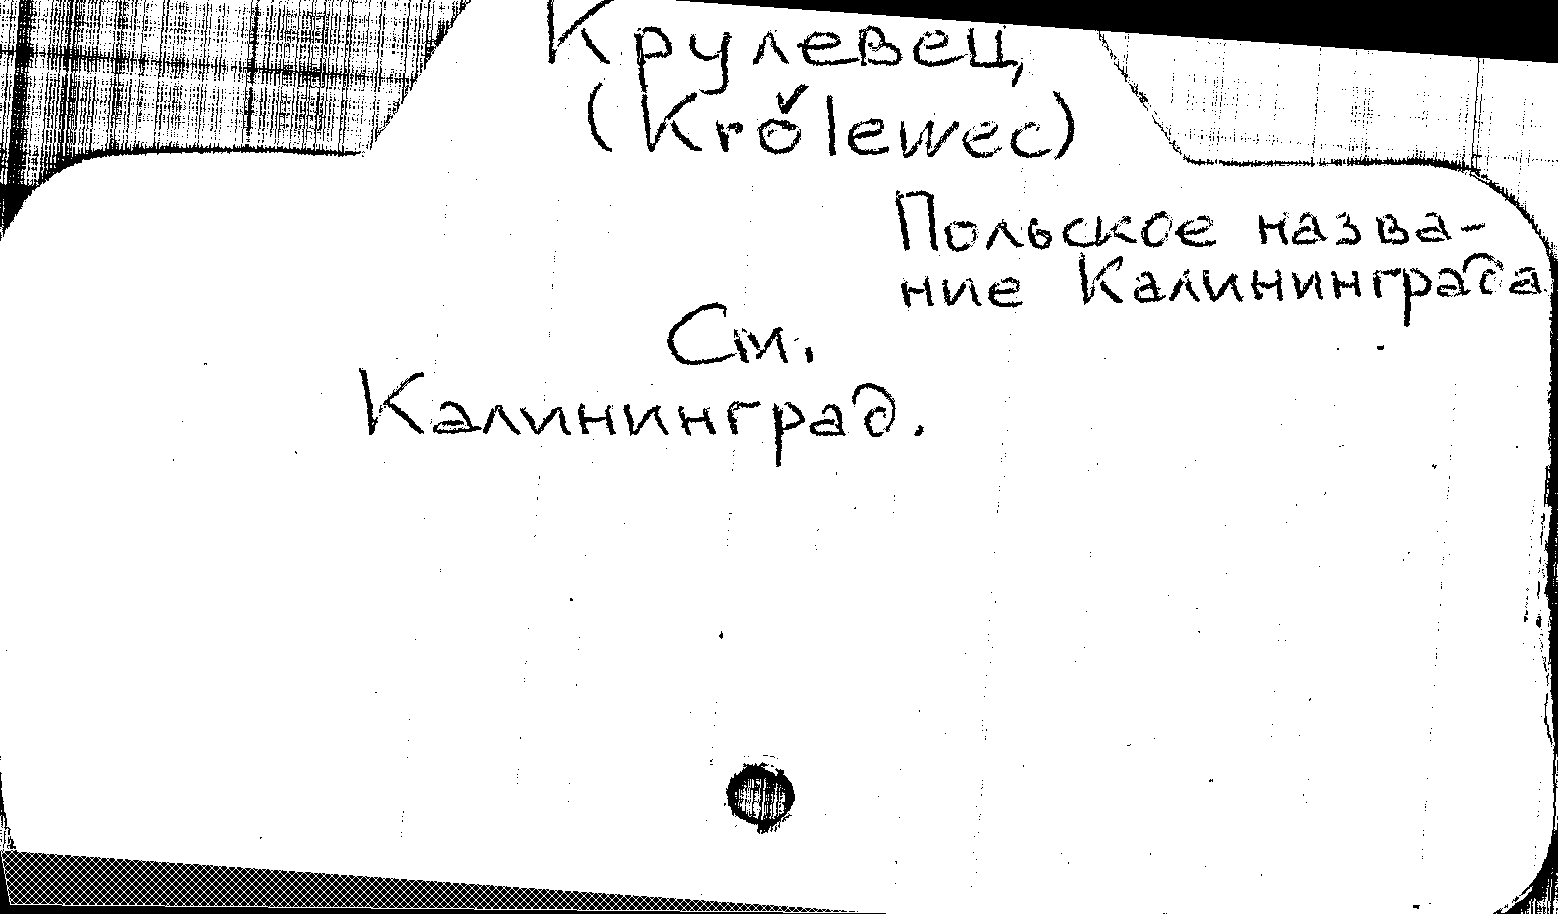 Крулевец
(Krǒlewec)
Польское назва-
ние Калининграда
См.
Калининград.